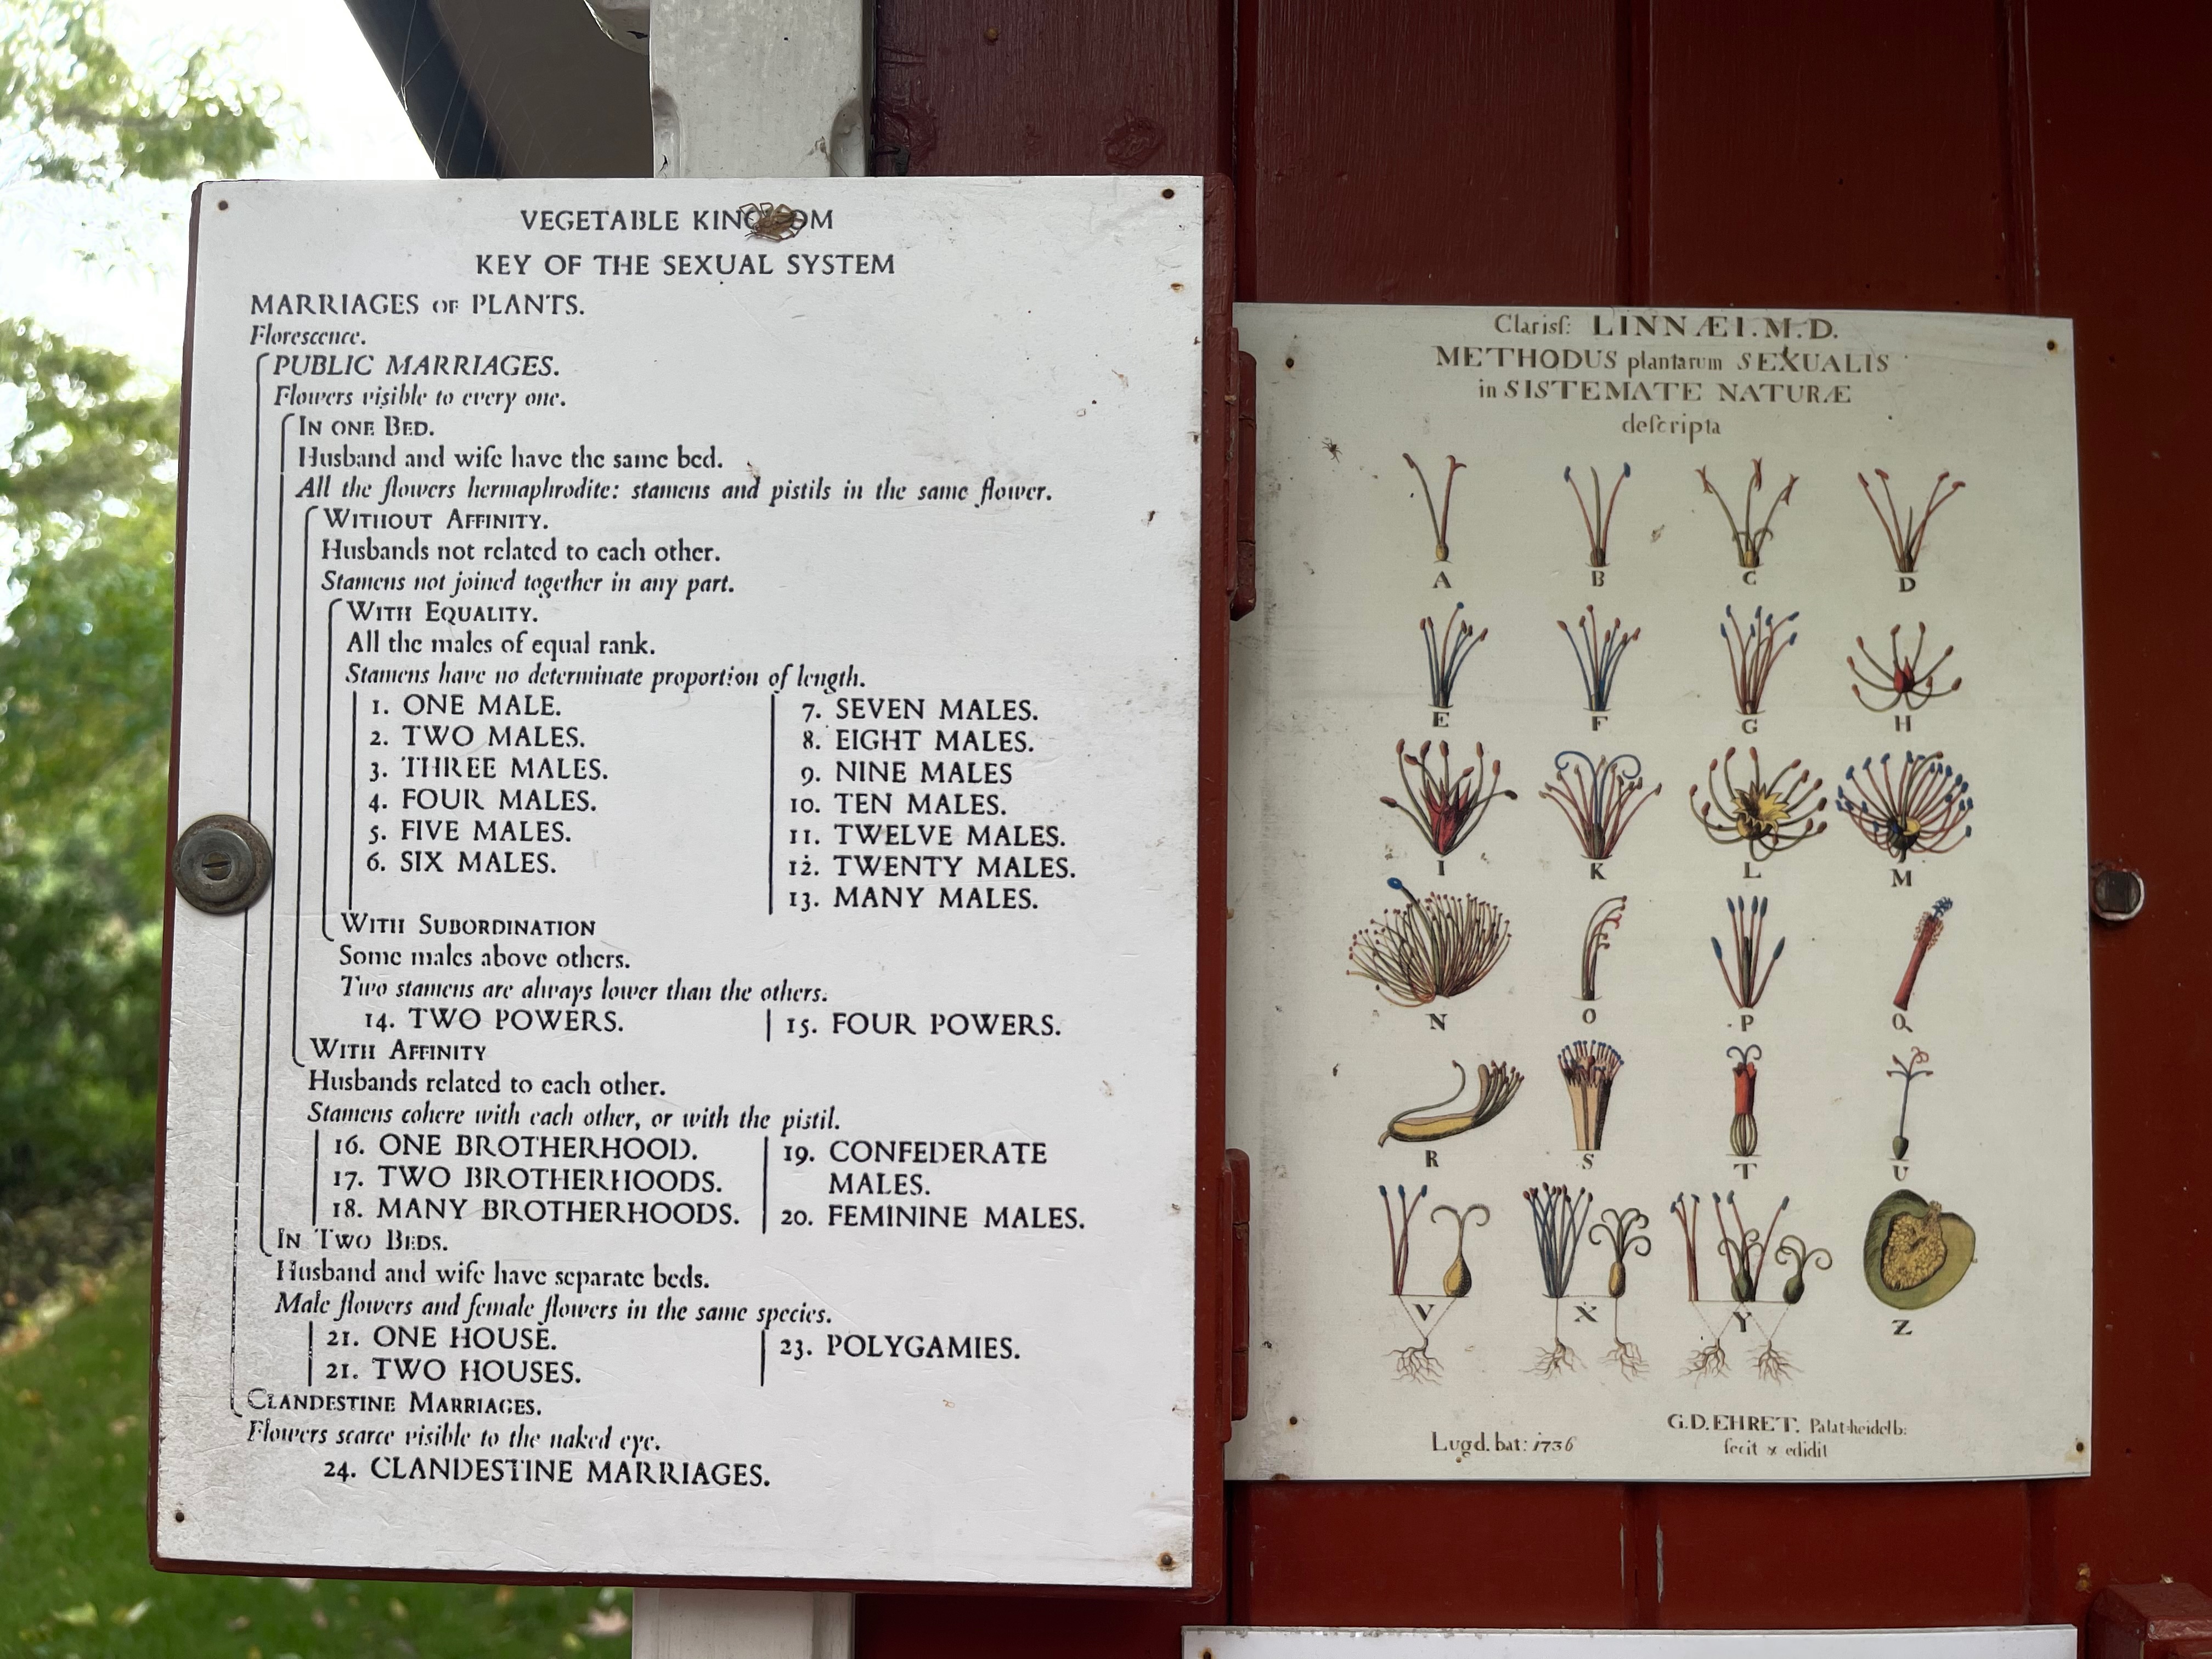 VEGETABLE KINGDOM
KEY OF THE SEXUAL SYSTEM
MARRIAGES OF PLANTS.
Florescence.
PUBLIC MARRIAGES.
Flowers visible to every one.
IN ONE BED.
Husband and wife have the same bed.
All the flowers hermaphrodite: stamens and pistils in the same flower.
WITHOUT AFFINITY.
Husbands not related to each other.
Stamens not joined together in any part.
WITH EQUALITY.
All the males of equal rank.
Stamens have no determinate proportion of length.
1. ONE MALE.
2. TWO MALES.
3. THREE MALES.
4. FOUR MALES.
5. FIVE MALES.
6. SIX MALES.
7. SEVEN MALES.
8. EIGHT MALES.
9. NINE MALES
10. TEN MALES.
11. TWELVE MALES.
12. TWENTY MALES.
13. MANY MALES.
WITH SUBORDINATION
Some males above others.
Two stamens are always lower than the others.
14. TWO POWERS.
15. FOUR POWERS.
WITH AFFINITY
Husbands related to each other.
Stamens cohere with each other, or with the pistil.
16. ONE BROTHERHOOD.
17. TWO BROTHERHOODS.
18. MANY BROTHERHOODS.
19. CONFEDERATE
MALES.
20. FEMININE MALES.
IN TWO BEDS.
Husband and wife have separate beds.
Male flowers and female flowers in the same species.
21. ONE HOUSE.
21. TWO HOUSES.
23. POLYGAMIES.
CLANDESTINE MARRIAGES.
Flowers scarce visible to the naked eye.
24. CLANDESTINE MARRIAGES.
Clarisſ: LINNÆI. M. D.
METHODUS plantarum SEXUALIS
in SISTEMATE NATURÆ
deſcripta
A B C D
E F G H
I K L M
N O P Q
R S T U
V X Y Z
Lugd. bat: 1736
G.D. EHRET. Palat-heidelb:
fecit & edidit